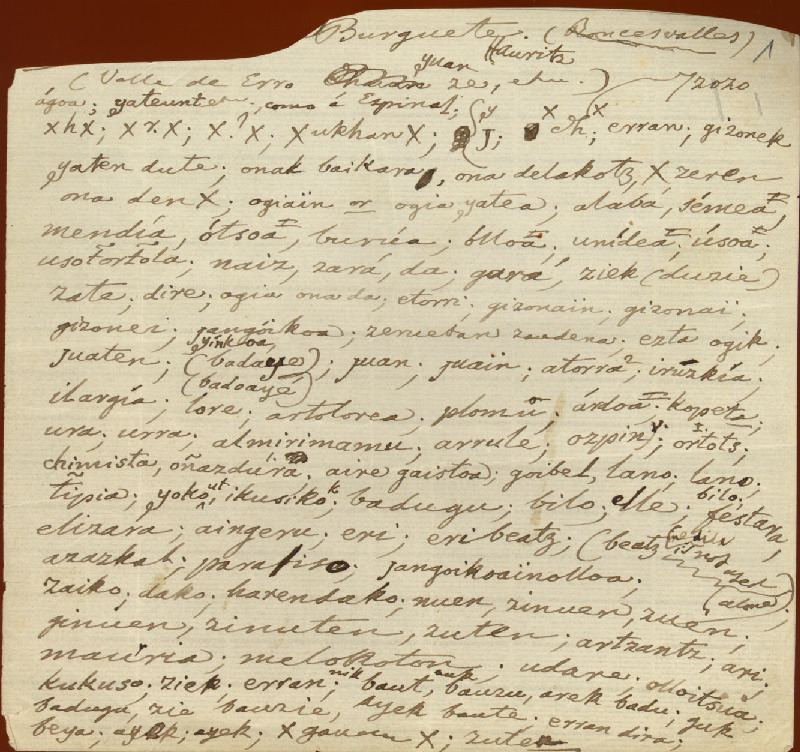 Burguete. (Roncesvalles) 1
yuan Auritz
(Valle de Erro ze, etu.) 7zozo
ágoa; yateunt etu., como á Espinal; y
x h x; x r x; x ? x; x ukhan x; J; x ch; x erran; gizonek
yaten dute; onak baikara, ona delakotz, x zeren
ona den x; ogiaïn or ogia yatea; alabá, sémea,
mendía, ótsoa, buruéa; olloa; unídea; úsoa;
usotórtola; naiz, zará, da; gará, ziek (duzie)
zate; dire; ogia ona da; etorri; gizonaïn; gizonaï;
gizonei; jangóikoa; zeruetan zaudena; ezta ogik;
yinkoa
juaten; (badaye); juan; juaïn; atorra; iruzkía;
(badoaye)
ilargía; lore; artolorea; plomu; árdoa; kopeta;
ura; urra; almirimamu; arrule; ozpin; ortots;
chimista, oñazdúra; aire gaistoa; goibel, lano; lano
tipia; yoko ut; ikusiko k badugu; bilo; elle; bilo; festara,
elizara; aingeru; eri; eri beatz; (beatz
azazkal; paraiso; jangoikoaïn olloa;
zaiko; dako; harendako; nuen, zinuen, zuen;
ginuen, zinuten, zuten; artzantz; ari;
mauria; melokoton; udare; olloitsua;
kukuso; ziek; erran; nik baut, bauzu, arek badu; guk
badugu, zie bauzie, ayek baute; erran dira;
beya; ayek; ayek; x gauen x; zuten